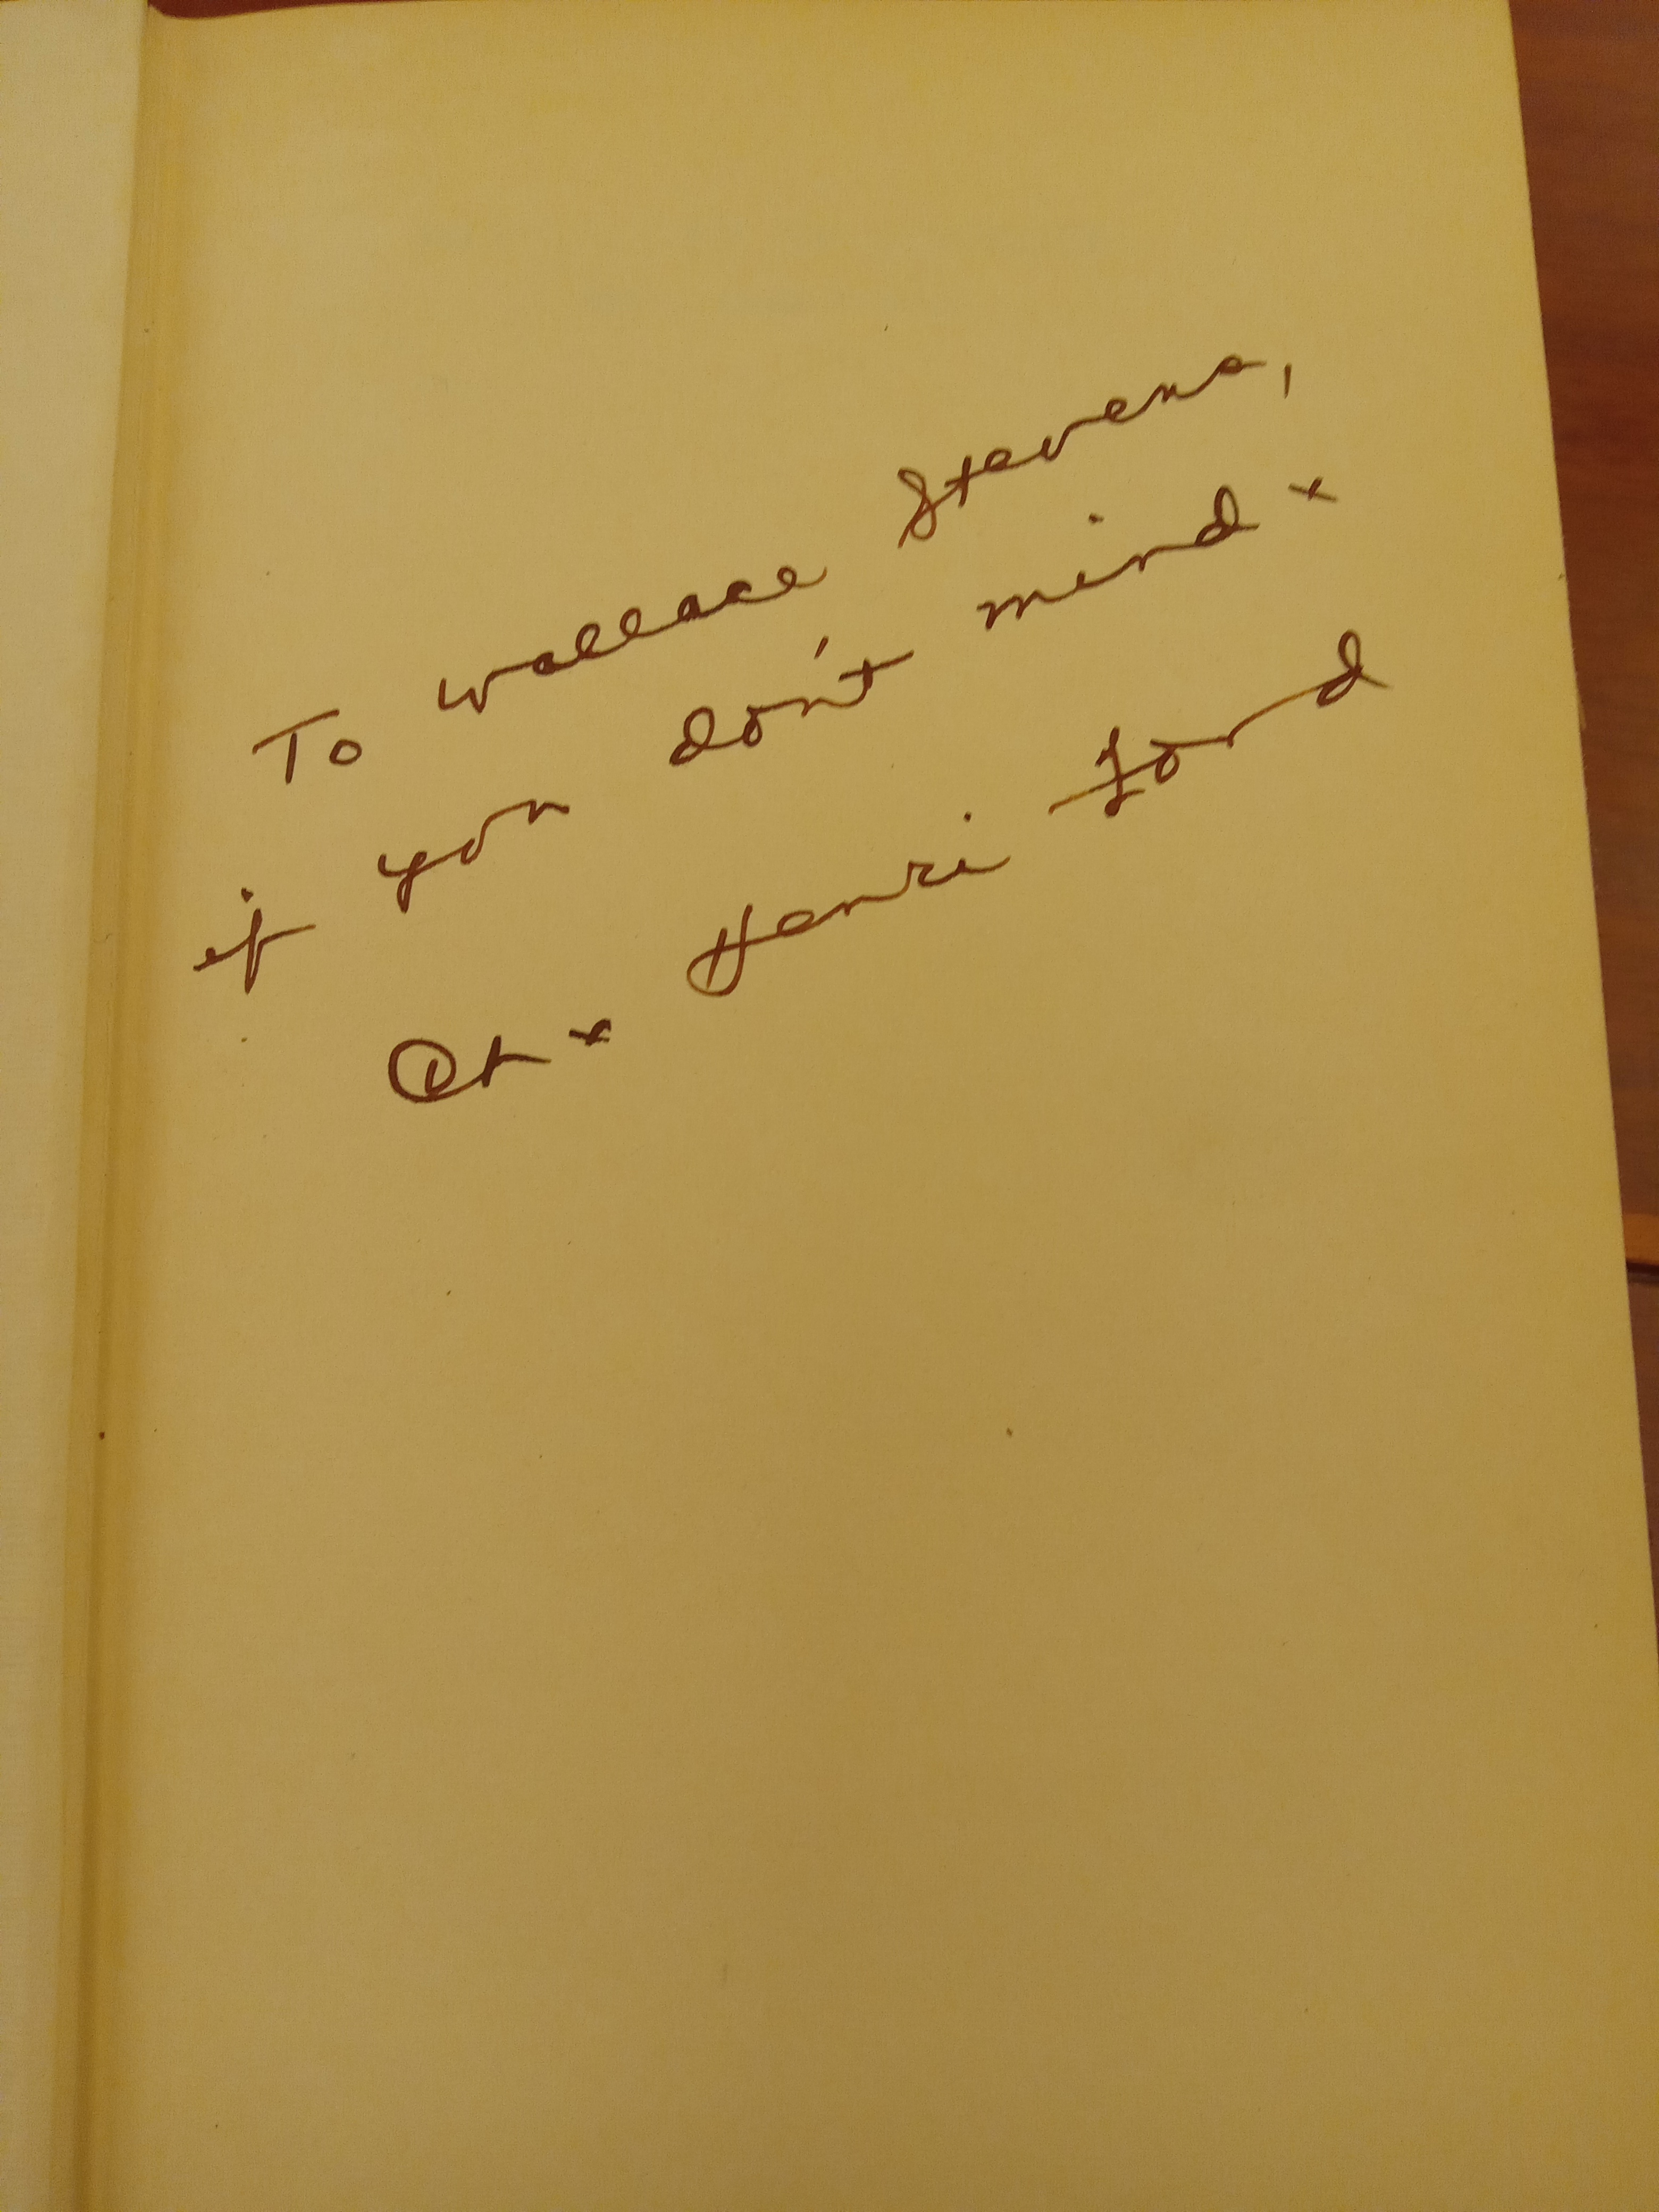 To Wallace Stevens,
if you don't mind x
Ch x Henri Ford